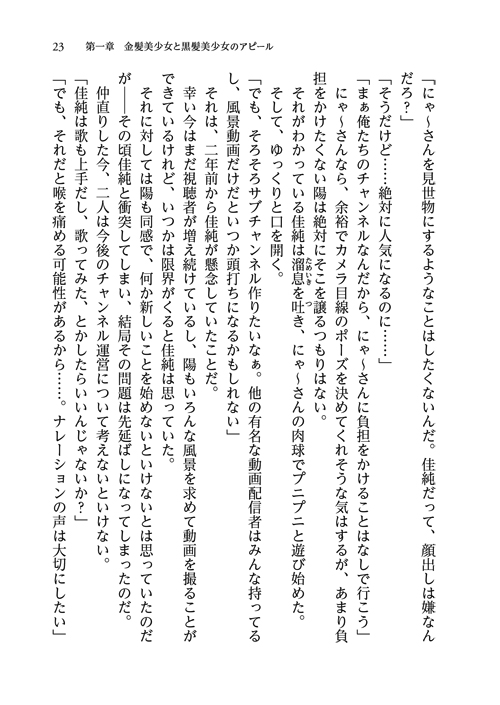 23　第一章　金髪美少女と黒髪美少女のアピール
「にゃ〜さんを見世物にするようなことはしたくないんだ。佳純だって、顔出しは嫌なん
だろ？」
「そうだけど……絶対に人気になるのに……」
「まぁ俺たちのチャンネルなんだから、にゃ〜さんに負担をかけることはなしで行こう」
　にゃ〜さんなら、余裕でカメラ目線のポーズを決めてくれそうな気はするが、あまり負
担をかけたくない陽は絶対にそこを譲るつもりはない。
　それがわかっている佳純は溜息を吐き、にゃ〜さんの肉球でプニプニと遊び始めた。
　そして、ゆっくりと口を開く。
「でも、そろそろサブチャンネル作りたいなぁ。他の有名な動画配信者はみんな持ってる
し、風景動画だけだといつか頭打ちになるかもしれない」
　それは、二年前から佳純が懸念していたことだ。
　幸い今はまだ視聴者が増え続けているし、陽もいろんな風景を求めて動画を撮ることが
できているけれど、いつかは限界がくると佳純は思っていた。
　それに対しては陽も同感で、何か新しいことを始めないといけないとは思っていたのだ
が――その頃佳純と衝突してしまい、結局その問題は先延ばしになってしまったのだ。
　仲直りした今、二人は今後のチャンネル運営について考えないといけない。
「佳純は歌も上手だし、歌ってみた、とかしたらいいんじゃないか？」
「でも、それだと喉を痛める可能性があるから……。ナレーションの声は大切にしたい」